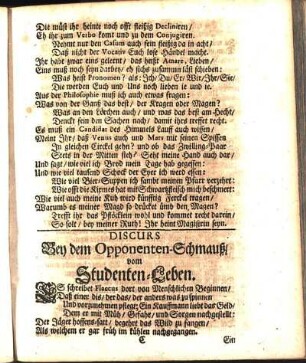 Die müßt ihr heinte noch offt fleißig Decliniren/
Eh ihr zum Verbo komt und zu dem Conjugiren.
Nehmt nur den Casum auch fein fleißig da in acht/
Daß nicht der Vocativ Euch lose Händel macht.
Ihr habt zwar eins gelernt/ das heist Amare, Lieben/
Eins muß noch seyn darbey/ eh sichs zusammen läst schieben:
Was heist Pronomen? als: Ich/Du/Er/Wir/Ihr/Sie/
Die werden Euch und Uns noch lieben ie und ie.
Aus der Philosophie muß ich auch etwas fragen:
Was von der Ganß das best/ der Kragen oder Magen?
Was an den Lerchen auch/ und was das best am Hecht/
Denckt fein den Sachen nach/ damit ihrs treffet recht.
Es muß ein Candidat des Himmels Lauff auch wissen/
Meint Ihr/ daß Venus auch und Mars mit seinen Spissen
In gleichen Circkel gehn? und ob das Zwilling/Paar
Stets in der Mitten steh/ Seht meine Hand auch dar/
Und sagt/ wie viel ich Brod mein Tage hab gegessen:
Und wie viel tausend Schock der Eyer ich werd essen:
Wie viel Bier-Suppen ich sambt meinem Pfarr verzehrt:
Wie offt die Kirmes hat mit Schwartzfleisch mich beschmert:
Wie viel auch meine Kuh wird künfftig Ferckel tragen/
Warumb es meiner Magd so drückt umb den Magen?
Trefft ihr das Pflöcklein wohl und kommet recht darein/
So solt/ bey meiner Ruth! Ihr heint Magistrin seyn.
DISCURS
Bey dem Opponenten-Schmauß/
vom
Studenten-Leben.
ES schreibet Flaccus dort von Menschlichen Beginnen/
Daß einer diß/ der das/ der anders was zu spinnen
Und vorzunehmen pflegt; Ein Kauffmann liebt das Geld/
Dem er mit Müh/ Gefahr/ und Sorgen nachgestellt:
Der Jäger hoffens-satt/ begehrt das Wild zu fangen/
Als welchem er gar früh im kühlen nachgegangen.
C
Ein